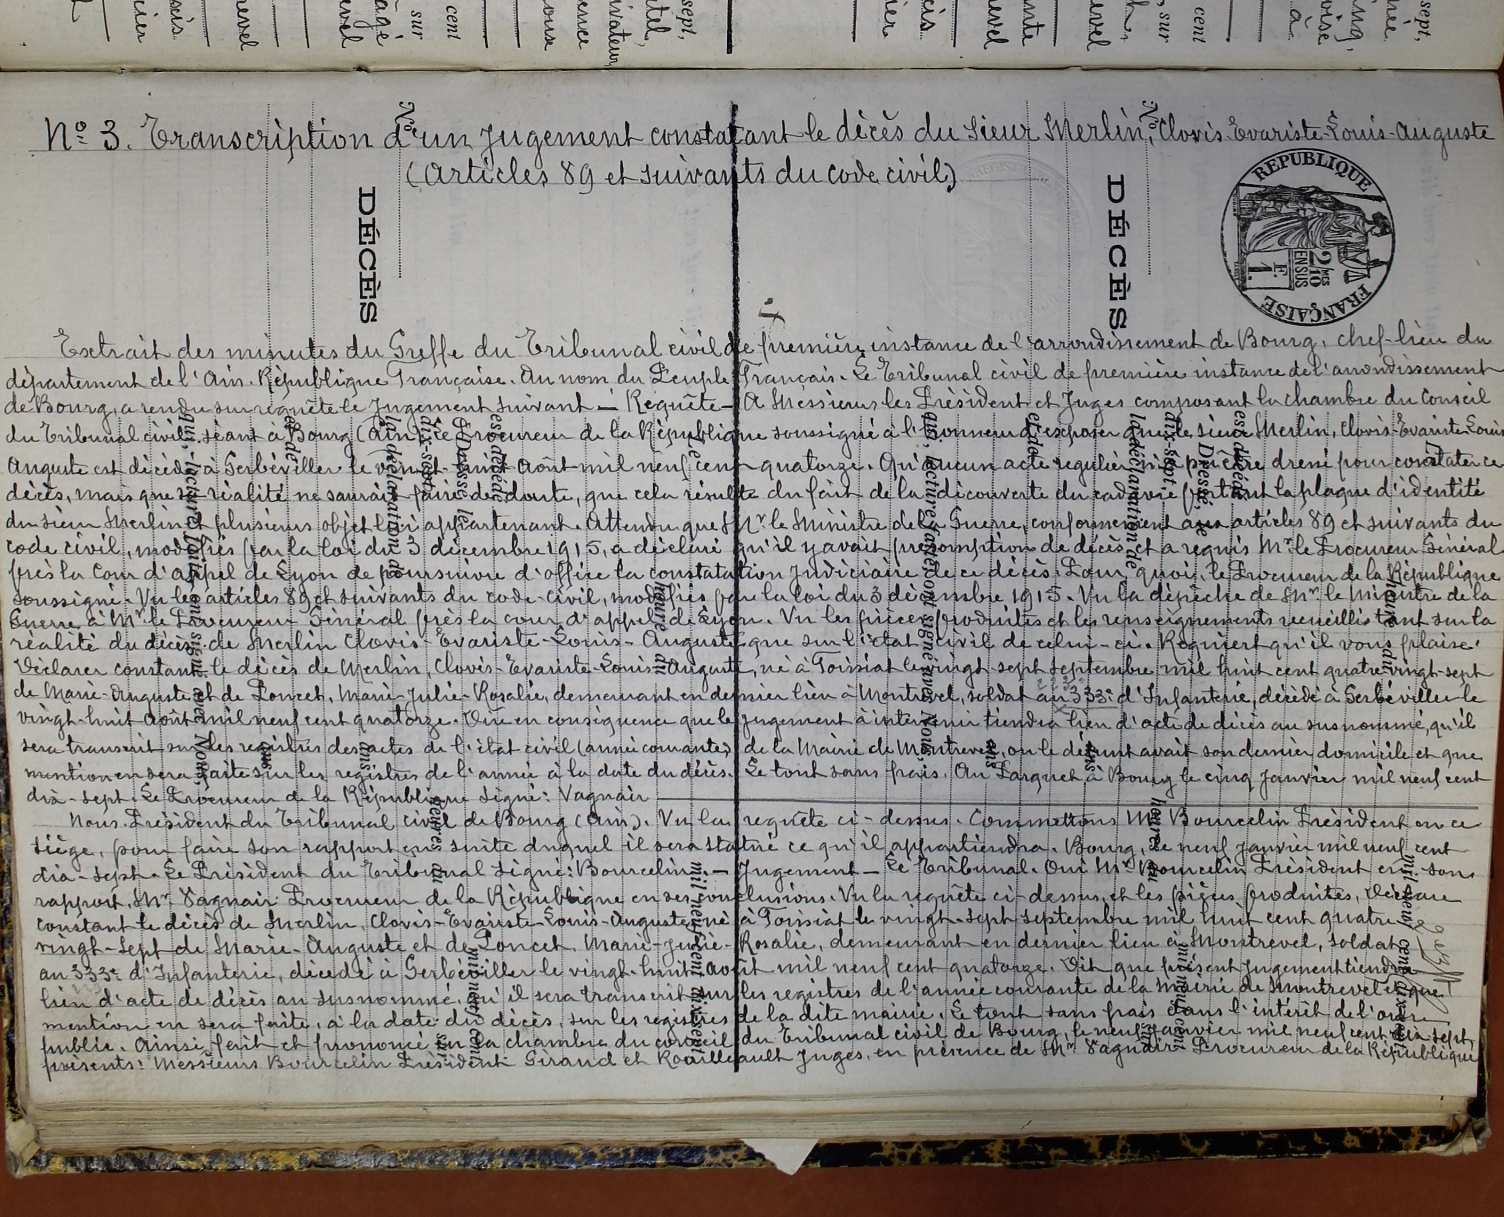 No 3. Transcription d'un Jugement constatant le décès du Sieur Merlin, Clovis-Evariste-Louis-Auguste
(Articles 89 et suivants du code civil)
DÉCÈS
DÉCÈS
RÉPUBLIQUE FRANÇAISE
2/10 MES EN SUS
1 F.
Extrait des minutes du Greffe du Tribunal civil de première instance de l'arrondissement de Bourg, chef-lieu du
département de l'Ain. République Française. Au nom du Peuple Français. Le Tribunal civil de première instance de l'arrondissement
de Bourg, a rendu sur requête le Jugement suivant — Requête — A Messieurs les Président et Juges composant la chambre du Conseil
du Tribunal civil, séant à Bourg (Ain) Le Procureur de la République soussigné a l'honneur d'exposer que le sieur Merlin, Clovis-Evariste-Louis
Auguste est décédé à Gerbéviller le vingt-huit Août mil neuf cent quatorze. Qu'aucun acte régulier n'a pu être dressé pour constater ce
décès, mais que sa réalité ne saurait faire de doute, que cela résulte du fait de la découverte du cadavre portant la plaque d'identité
du sieur Merlin et plusieurs objet lui appartenant. Attendu que Mr. le Ministre de la Guerre, conformement aux articles 89 et suivants du
code civil, modifiés par la loi du 3 décembre 1915, a déclaré qu'il y avait présomption de décès et a requis Mr. le Procureur Général
près la Cour d'appel de Lyon de poursuivre d'office la constatation judiciaire de ce décès. Pour quoi, le Procureur de la République
soussigné. Vu les articles 89 et suivants du code civil, modifiés par la loi du 3 décembre 1915. Vu la dépêche de Mr. le Ministre de la
Guerre à Mr. le Procureur Général près la cour d'appel de Lyon. Vu les pièces produites et les renseignements recueillis tant sur la
réalité du décès de Merlin Clovis-Evariste-Louis-Auguste que sur l'état civil de celui-ci. Requiert qu'il vous plaise:
Déclarer constant le décès de Merlin, Clovis-Evariste-Louis-Auguste, né à Foissiat le vingt-sept septembre mil huit cent quatre vingt-sept
de Marie-Auguste et de Poncet, Marie-Julie-Rosalie, demeurant en dernier lieu à Montrevel, soldat au 333e d'Infanterie, décédé à Gerbéviller le
vingt-huit Août mil neuf cent quatorze. Dire en conséquence que le Jugement à intervenir tiendra lieu d'acte de décès au susnommé, qu'il
sera transcrit sur les registres des actes de l'état civil (année courante) de la Mairie de Montrevel, ou le défunt avait son dernier domicile et que
mention en sera faite sur les registres de l'année à la date du décès. Le tout sans frais. Au Parquet à Bourg le cinq Janvier mil neuf cent
dix-sept. Le Procureur de la République signé: Vagnair
Nous. Président du Tribunal civil de Bourg (Ain). Vu la requête ci-dessus. Commettons Mr Bourcelin Président en ce
siège, pour faire son rapport en suite duquel il sera statué ce qu'il appartiendra. Bourg, le neuf janvier mil neuf cent
dix-sept. Le Président du Tribunal signé: Bourcelin. — Jugement — Le Tribunal. Oui Mr Bourcelin Président en son
rapport, Mr Vagnair Procureur de la République en ses conclusions. Vu la requête ci-dessus et les pièces produites, Déclare
constant le décès de Merlin, Clovis-Evariste-Louis-Auguste, né à Foissiat le vingt-sept septembre mil huit cent quatre
vingt-sept de Marie-Auguste et de Poncet, Marie-Julie-Rosalie, demeurant en dernier lieu à Montrevel, soldat
au 333e d'Infanterie, décédé à Gerbéviller le vingt-huit août mil neuf cent quatorze. Dit que présent Jugement tiendra
lieu d'acte de décès au susnommé, qu'il sera transcrit sur les registres de l'année courante de la Mairie de Montrevel et que
mention en sera faite, à la date du décès, sur les registres de la dite mairie. Le tout sans frais dans l'intérêt de l'ordre
public. Ainsi fait et prononcé en la chambre du conseil du Tribunal civil de Bourg, le neuf janvier mil neuf cent dix sept,
présents: Messieurs Bourcelin Président Giraud et Juges, en présence de Mr Vagnair Procureur de la République